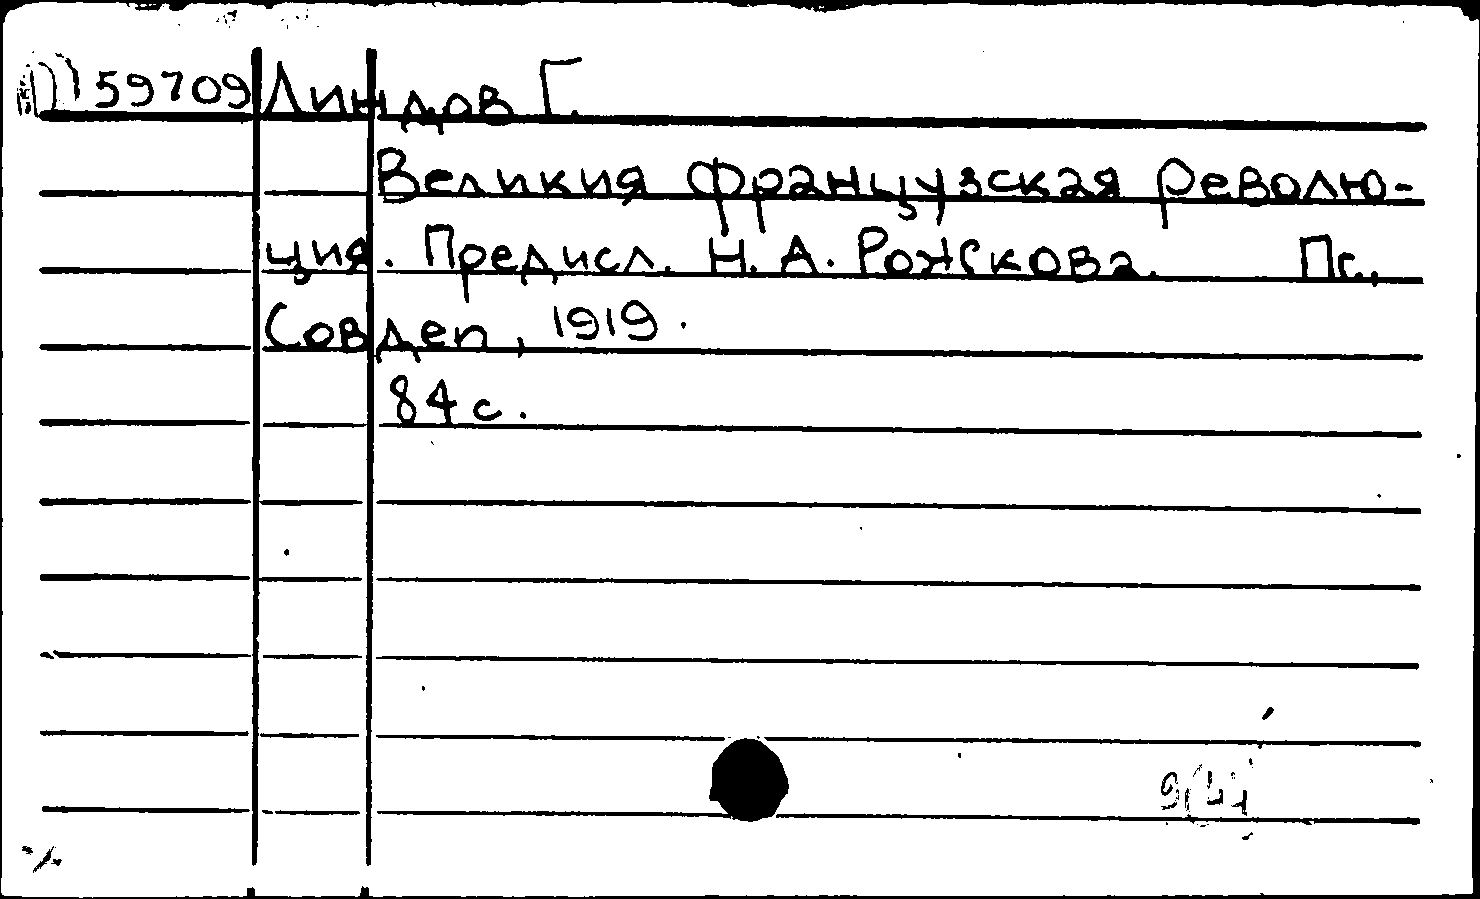 59709 Линдов Г.
Великия французская револю-
ция. Предисл. Н. А. Рожкова. Пг.,
Совдеп, 1919.
84 с.
9(44)